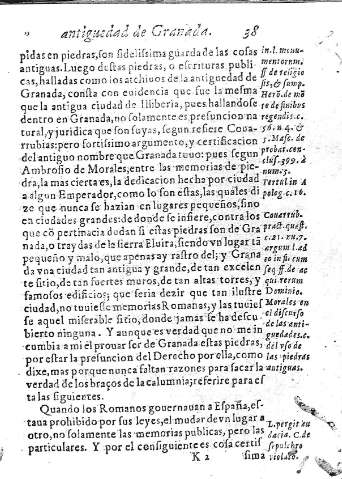 antiguedad de Granada. 38
pidas en piedras, son fidelissima guarda de las cosas
antiguas. Luego destas piedras, o escrituras publi
cas, halladas como los archiuos de la antiguedad de
Granada, consta con euidencia que fue la mesma
que la antigua ciudad de Iliberia, pues hallandose
dentro en Granada, no solamente es presuncion na
tural, y juridica que son suyas, segun refiere Coua-
rrubias: pero fortissimo argumento, y certificacion
del antiguo nombre que Granada tuuo: pues segun
Ambrosio de Morales, entre las memorias de pie-
dra, la mas cierta es, la dedicacion hecha por ciudad
a algun Emperador, como lo son estas, las quales di
ze que nunca se hazian en lugares pequeños, sino
en ciudades grandes: de donde se infiere, contra los
que cō pertinacia dudan si estas piedras son de Gra
nada, o traydas de la sierra Eluira, siendo vn lugar tā
pequeño y malo, que apenas ay rastro del; y Grana
da vna ciudad tan antigua y grande, de tan excelen
te sitio, de tan fuertes muros, de tan altas torres, y
famosos edificios; que seria dezir que tan ilustre
ciudad, no tuuiesse memorias Romanas, y las tuuies
se aquel miserable sitio, donde jamas se ha descu
bierto ninguna. Y aunque es verdad que no me in
cumbia a mi el prouar ser de Granada estas piedras,
por estar la presuncion del Derecho por ella, como
dixe, mas porque nunca faltan razones para sacar la
verdad de los braços de la calumnia; referire para es
ta las siguientes.
Quando los Romanos gouernauan a España, es-
taua prohibido por sus leyes, el mudar de vn lugar a
otro, no solamente las memorias publicas, pero las
particulares. Y por el consiguiente es cosa certis
K 2 sima
in. l. monu-
mentorum.
ff. de religio
sis, & sump.
re de finibus
regendis. c.
probat. con-
clus. 399. à
num. 5.
Tertul. in A
polog. c. 16.
Couarrub.
pract. quæst.
c. 21. nu. 7.
seq. ff. de ac
qui. rerum
Dominio.
Morales en
el discurso
de las anti-
guedades. c.
del vso de
las piedras
antiguas.
dacia. C. de
sepulchro
violato.